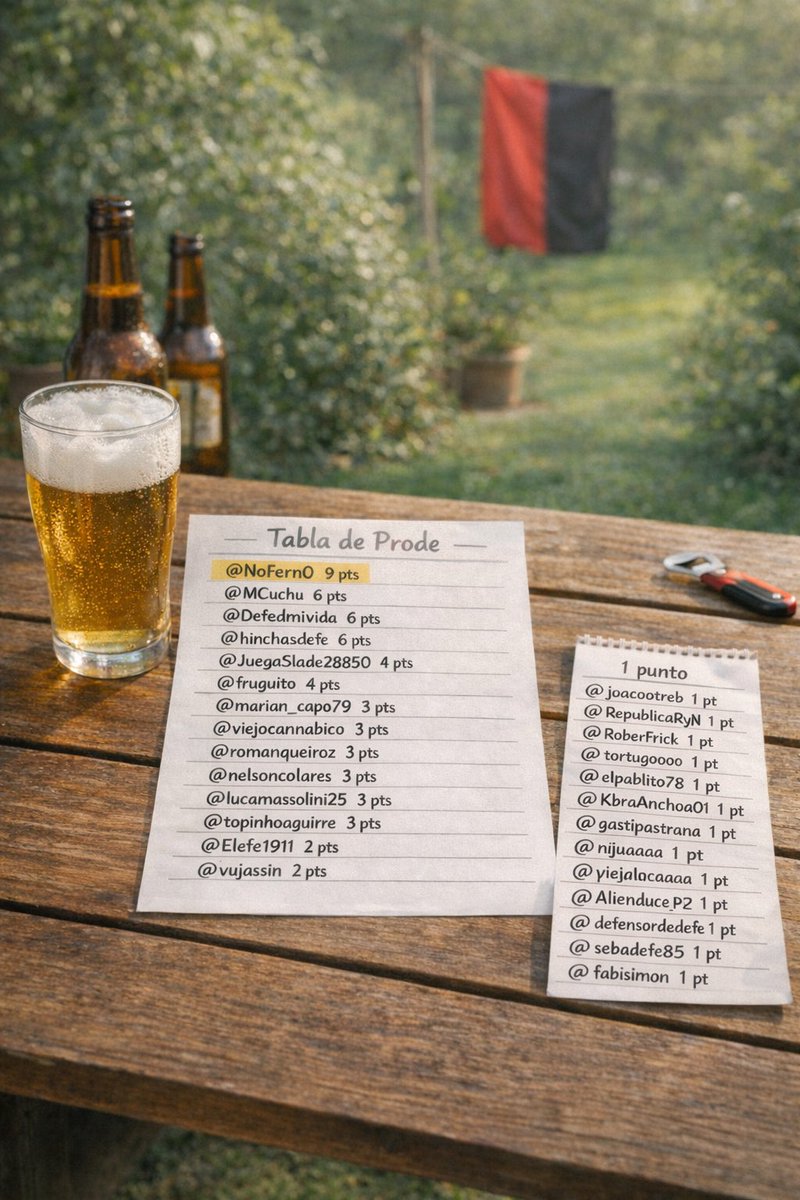 Tabla de Prode
@NoFern0 9 pts
@MCuchu 6 pts
@Defedmivida 6 pts
@hinchasdefe 6 pts
@JuegaSlade28850 4 pts
@fruguito 4 pts
@marian_capo79 3 pts
@viejocannabico 3 pts
@romanqueiroz 3 pts
@nelsoncolares 3 pts
@lucamassolini25 3 pts
@topinhoaguirre 3 pts
@Elefe1911 2 pts
@vujassin 2 pts
1 punto
@joacootreb 1 pt
@RepublicaRyN 1 pt
@RoberFrick 1 pt
@tortugoooo 1 pt
@elpablito78 1 pt
@KbraAnchoa01 1 pt
@gastipastrana 1 pt
@nijuaaaa 1 pt
@yiejalocaaaa 1 pt
@Alienduce_P2 1 pt
@defensordedefe 1 pt
@sebadefe85 1 pt
@fabisimon 1 pt